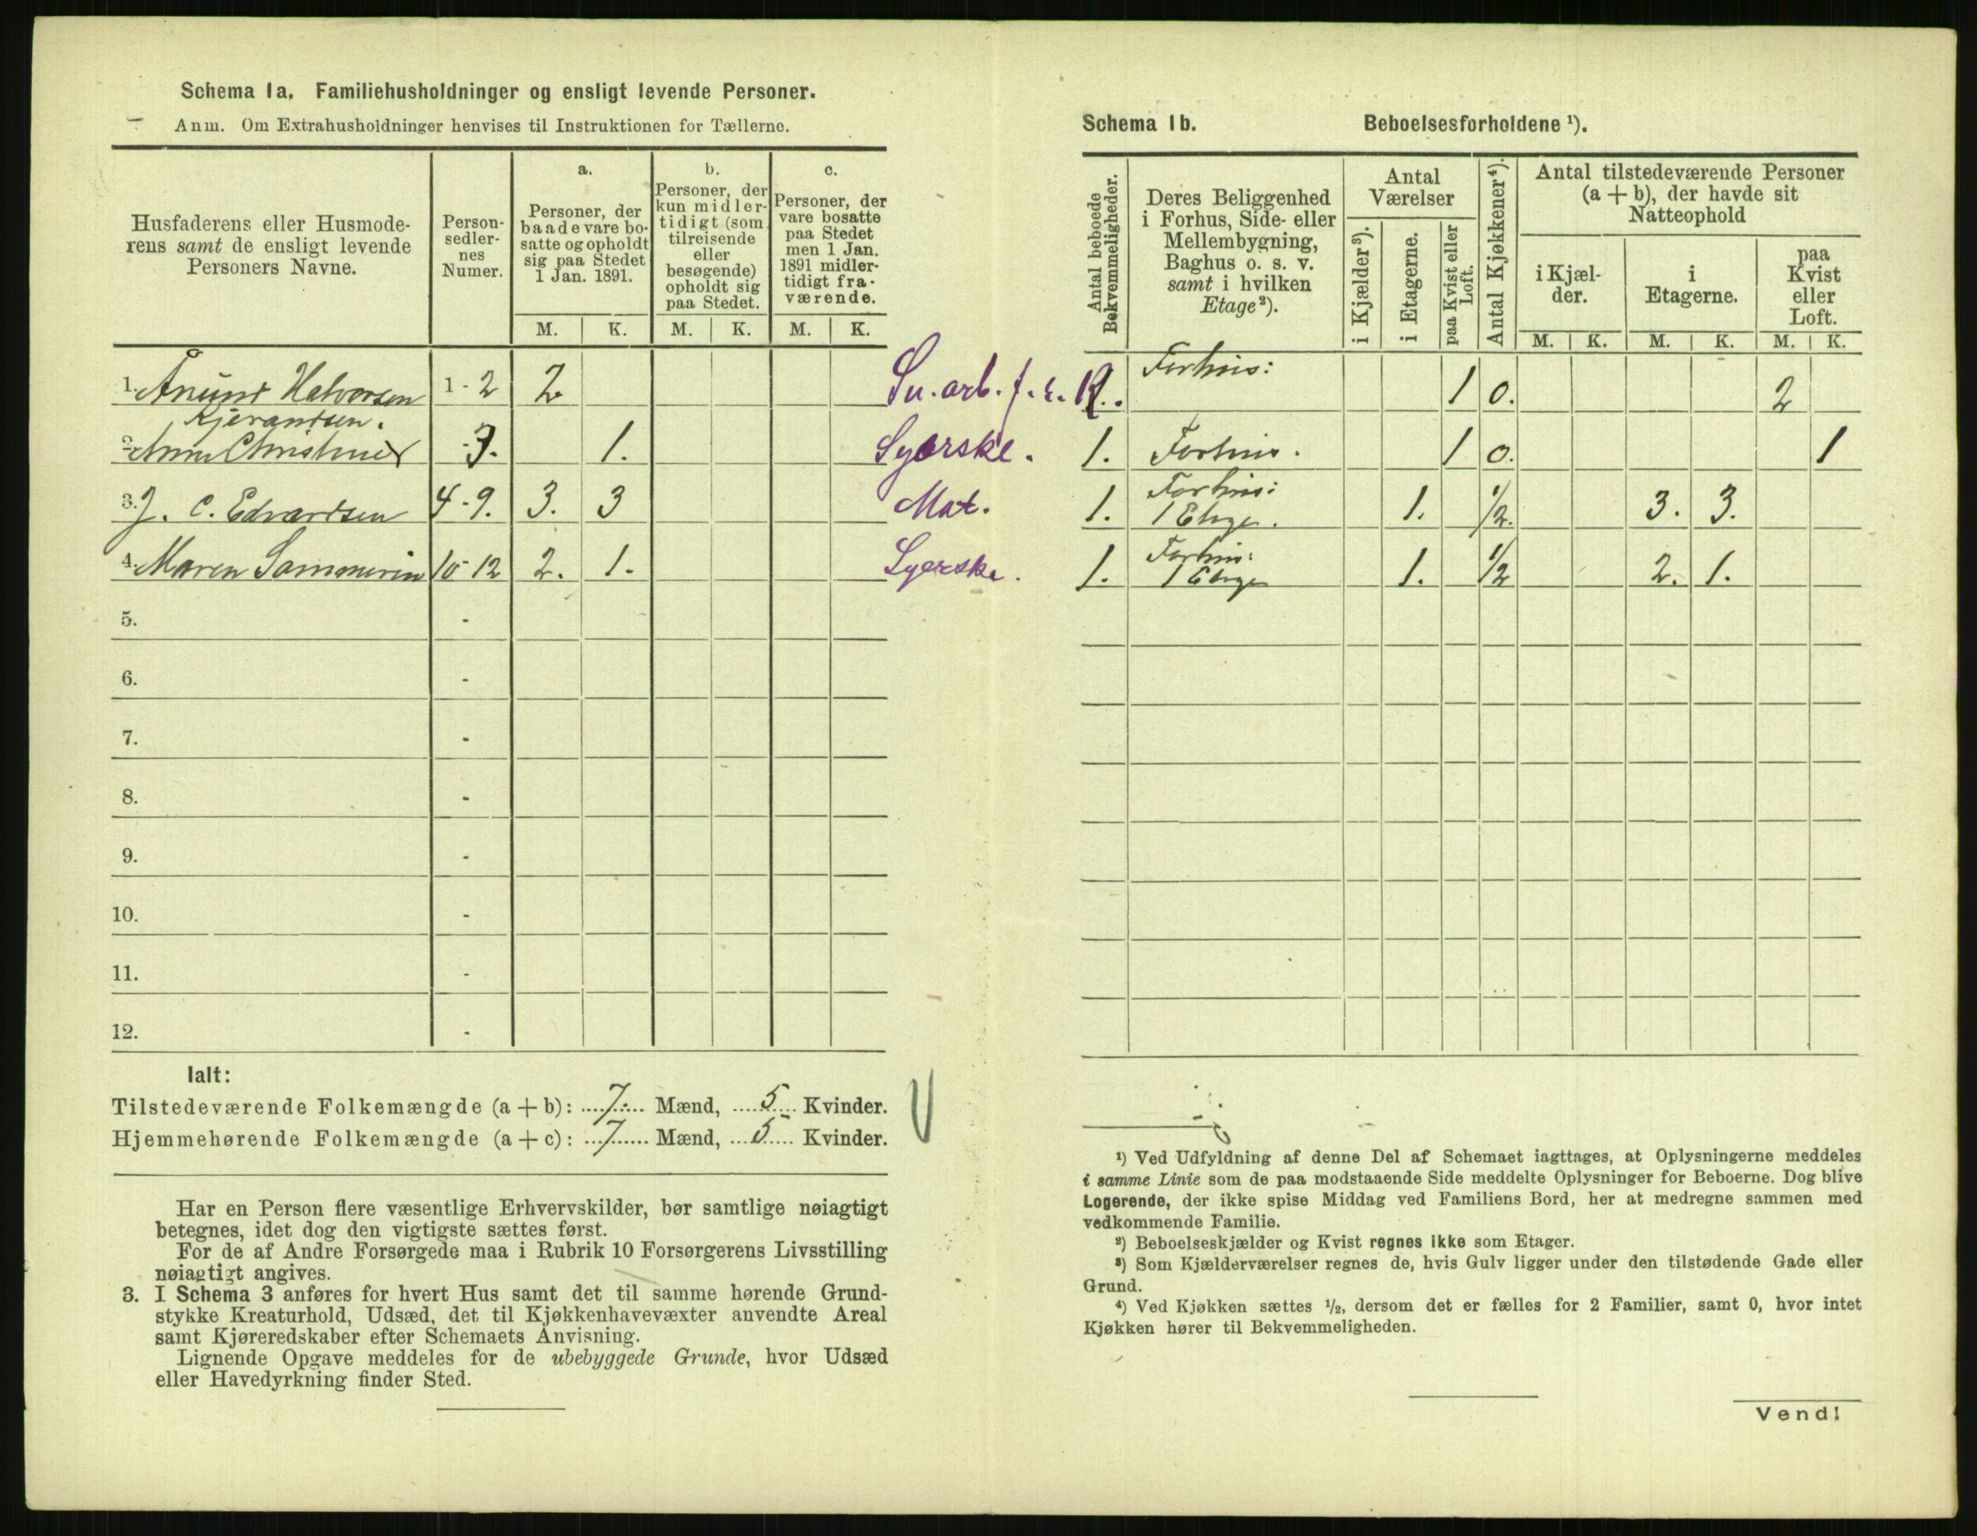 Schema 1a. Familiehusholdninger og ensligt levende Personer.
Anm. Om Extrahusholdninger henvises til Instruktionen for Tællerne.
Husfaderens eller Husmode-
rens samt de ensligt levende
Personers Navne.
Person-
sedler-
nes
Numer.
a.
Personer, der
baade vare bo-
satte og opholdt
sig paa Stedet
1 Jan. 1891.
b.
Personer, der
kun midler-
tidigt (som
tilreisende
eller
besøgende)
opholdt sig
paa Stedet.
c.
Personer, der
vare bosatte
paa Stedet
men 1 Jan.
1891 midler-
tidigt fra-
værende.
M. K. M. K. M. K.
1. Anund Halvorsen 1 - 2 2 Sn. arb. f. e. R.
Kjerandsen.
2. Anne Christine 3. 1. Syerske.
3. J. C. Edvardsen 4 - 9. 3. 3 Mat.
4. Maren Sammerin 10 - 12 2. 1. Syerske.
5. -
6. -
7. -
8. -
9. -
10. -
11. -
12. -
Ialt:
Tilstedeværende Folkemængde (a + b): 7. Mænd, 5 Kvinder.
Hjemmehørende Folkemængde (a + c): 7 Mænd, 5 Kvinder.
Har en Person flere væsentlige Erhvervskilder, bør samtlige nøiagtigt
betegnes, idet dog den vigtigste sættes først.
For de af Andre Forsørgede maa i Rubrik 10 Forsørgerens Livsstilling
nøiagtigt angives.
3. I Schema 3 anføres for hvert Hus samt det til samme hørende Grund-
stykke Kreaturhold, Udsæd, det til Kjøkkenhavevæxter anvendte Areal
samt Kjøreredskaber efter Schemaets Anvisning.
Lignende Opgave meddeles for de ubebyggede Grunde, hvor Udsæd
eller Havedyrkning finder Sted.
Schema 1b. Beboelsesforholdene ¹).
Antal beboede
Bekvemmeligheder.
Deres Beliggenhed
i Forhus, Side- eller
Mellembygning,
Baghus o. s. v.
samt i hvilken
Etage²).
Antal
Værelser
i Kjælder³).
i Etagerne.
paa Kvist eller
Loft.
Antal Kjøkkener⁴).
Antal tilstedeværende Personer
(a + b), der havde sit
Natteophold
i Kjæl-
der.
i
Etagerne.
paa
Kvist
eller
Loft.
M. K. M. K. M. K.
Forhus: 1 0. 2
1. Forhus. 1 0. 1
1. Forhus: 1 Etage. 1. 1/2. 3. 3.
1. Forhus: 1 Etage 1. 1/2 2. 1.
¹) Ved Udfyldning af denne Del af Schemaet iagttages, at Oplysningerne meddeles
i samme Linie som de paa modstaaende Side meddelte Oplysninger for Beboerne. Dog blive
Logerende, der ikke spise Middag ved Familiens Bord, her at medregne sammen med
vedkommende Familie.
²) Beboelseskjælder og Kvist regnes ikke som Etager.
³) Som Kjælderværelser regnes de, hvis Gulv ligger under den tilstødende Gade eller
Grund.
⁴) Ved Kjøkken sættes ½, dersom det er fælles for 2 Familier, samt 0, hvor intet
Kjøkken hører til Bekvemmeligheden.
Vend!